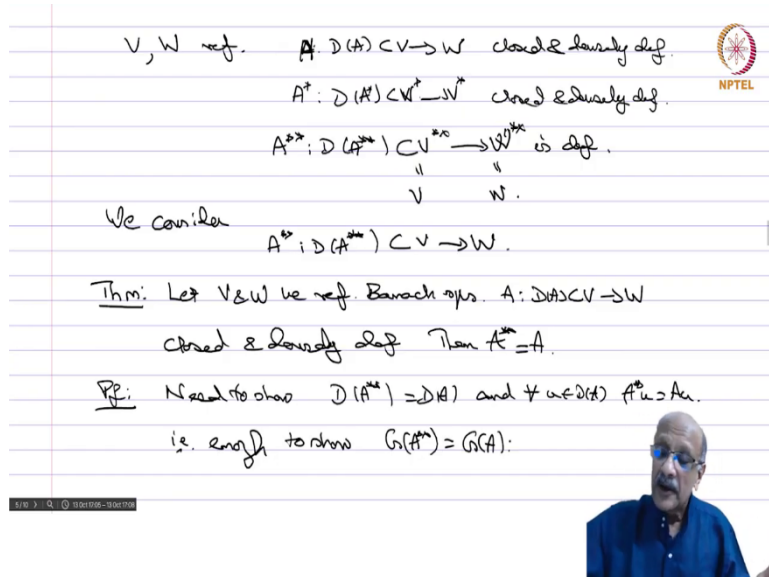 V, W ref. A: D(A) ⊂ V → W closed & densely def.
NPTEL
A* : D(A*) ⊂ W* → V* closed & densely def.
A** : D(A**) ⊂ V** → W** is def.
" "
V W.
We consider
A** : D(A**) ⊂ V → W.
Thm: Let V & W be ref. Banach sps. A: D(A) ⊂ V → W
closed & densely def Then A** = A.
Pf: Need to show D(A**) = D(A) and ∀ u ∈ D(A) A**u = Au.
i.e. enough to show G(A**) = G(A):
5/10 13 Oct 17:05 – 13 Oct 17:08